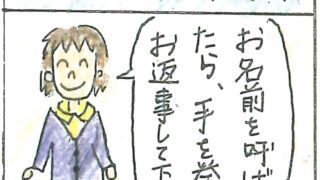 お名前を呼ば
たら、手を挙
お返事して下